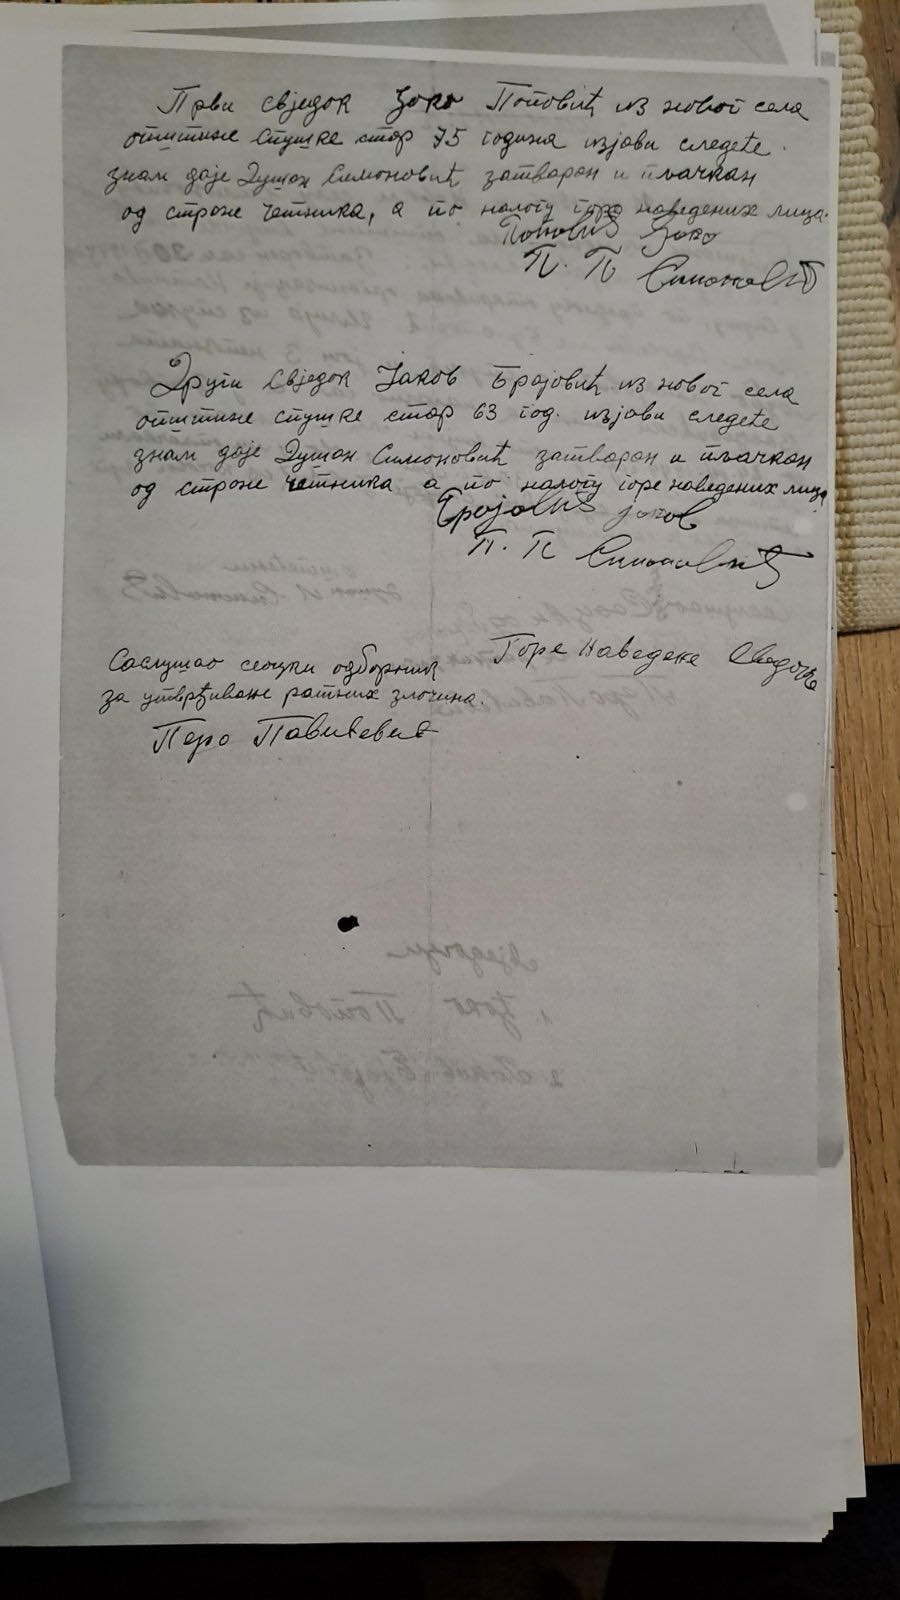 Први свједок Јоко Поповић из новог села
општине спушке стар 75 година изјави следеће.
знам даје Душан Симоновић затваран и пљачкан
од стране четника, а по налогу горе наведених лица.
Поповић Јоко
П. П Симоновић
Други свједок Јаков Брајовић из новог села
општине спушке стар 63 год. изјави следеће
знам даје Душан Симоновић затваран и пљачкан
од стране четника а по налогу горе наведених лица
Брајовић Јаков
П. П Симоновић
Саслушао сеоцки одборник Горе Наведене Сведоке
за утврђивање ратних злочина.
Перо Павићевић